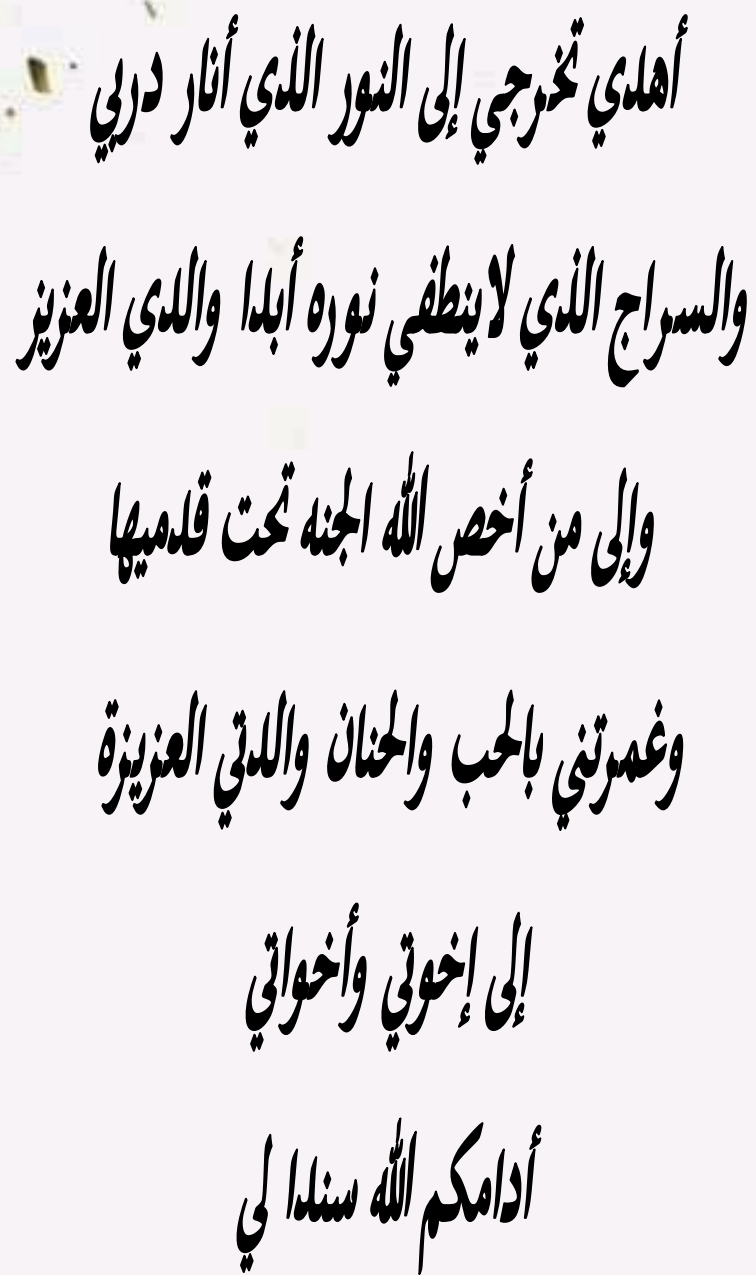 أهدي تخرجي إلى النور الذي أنار دربي
والسراج الذي لاينطفي نوره أبدا والدي العزيز
وإلى من أخص الله الجنه تحت قدميها
وغمرتني بالحب والحنان والدتي العزيزة
إلى إخوتي وأخواتي
أدامكم الله سندا لي